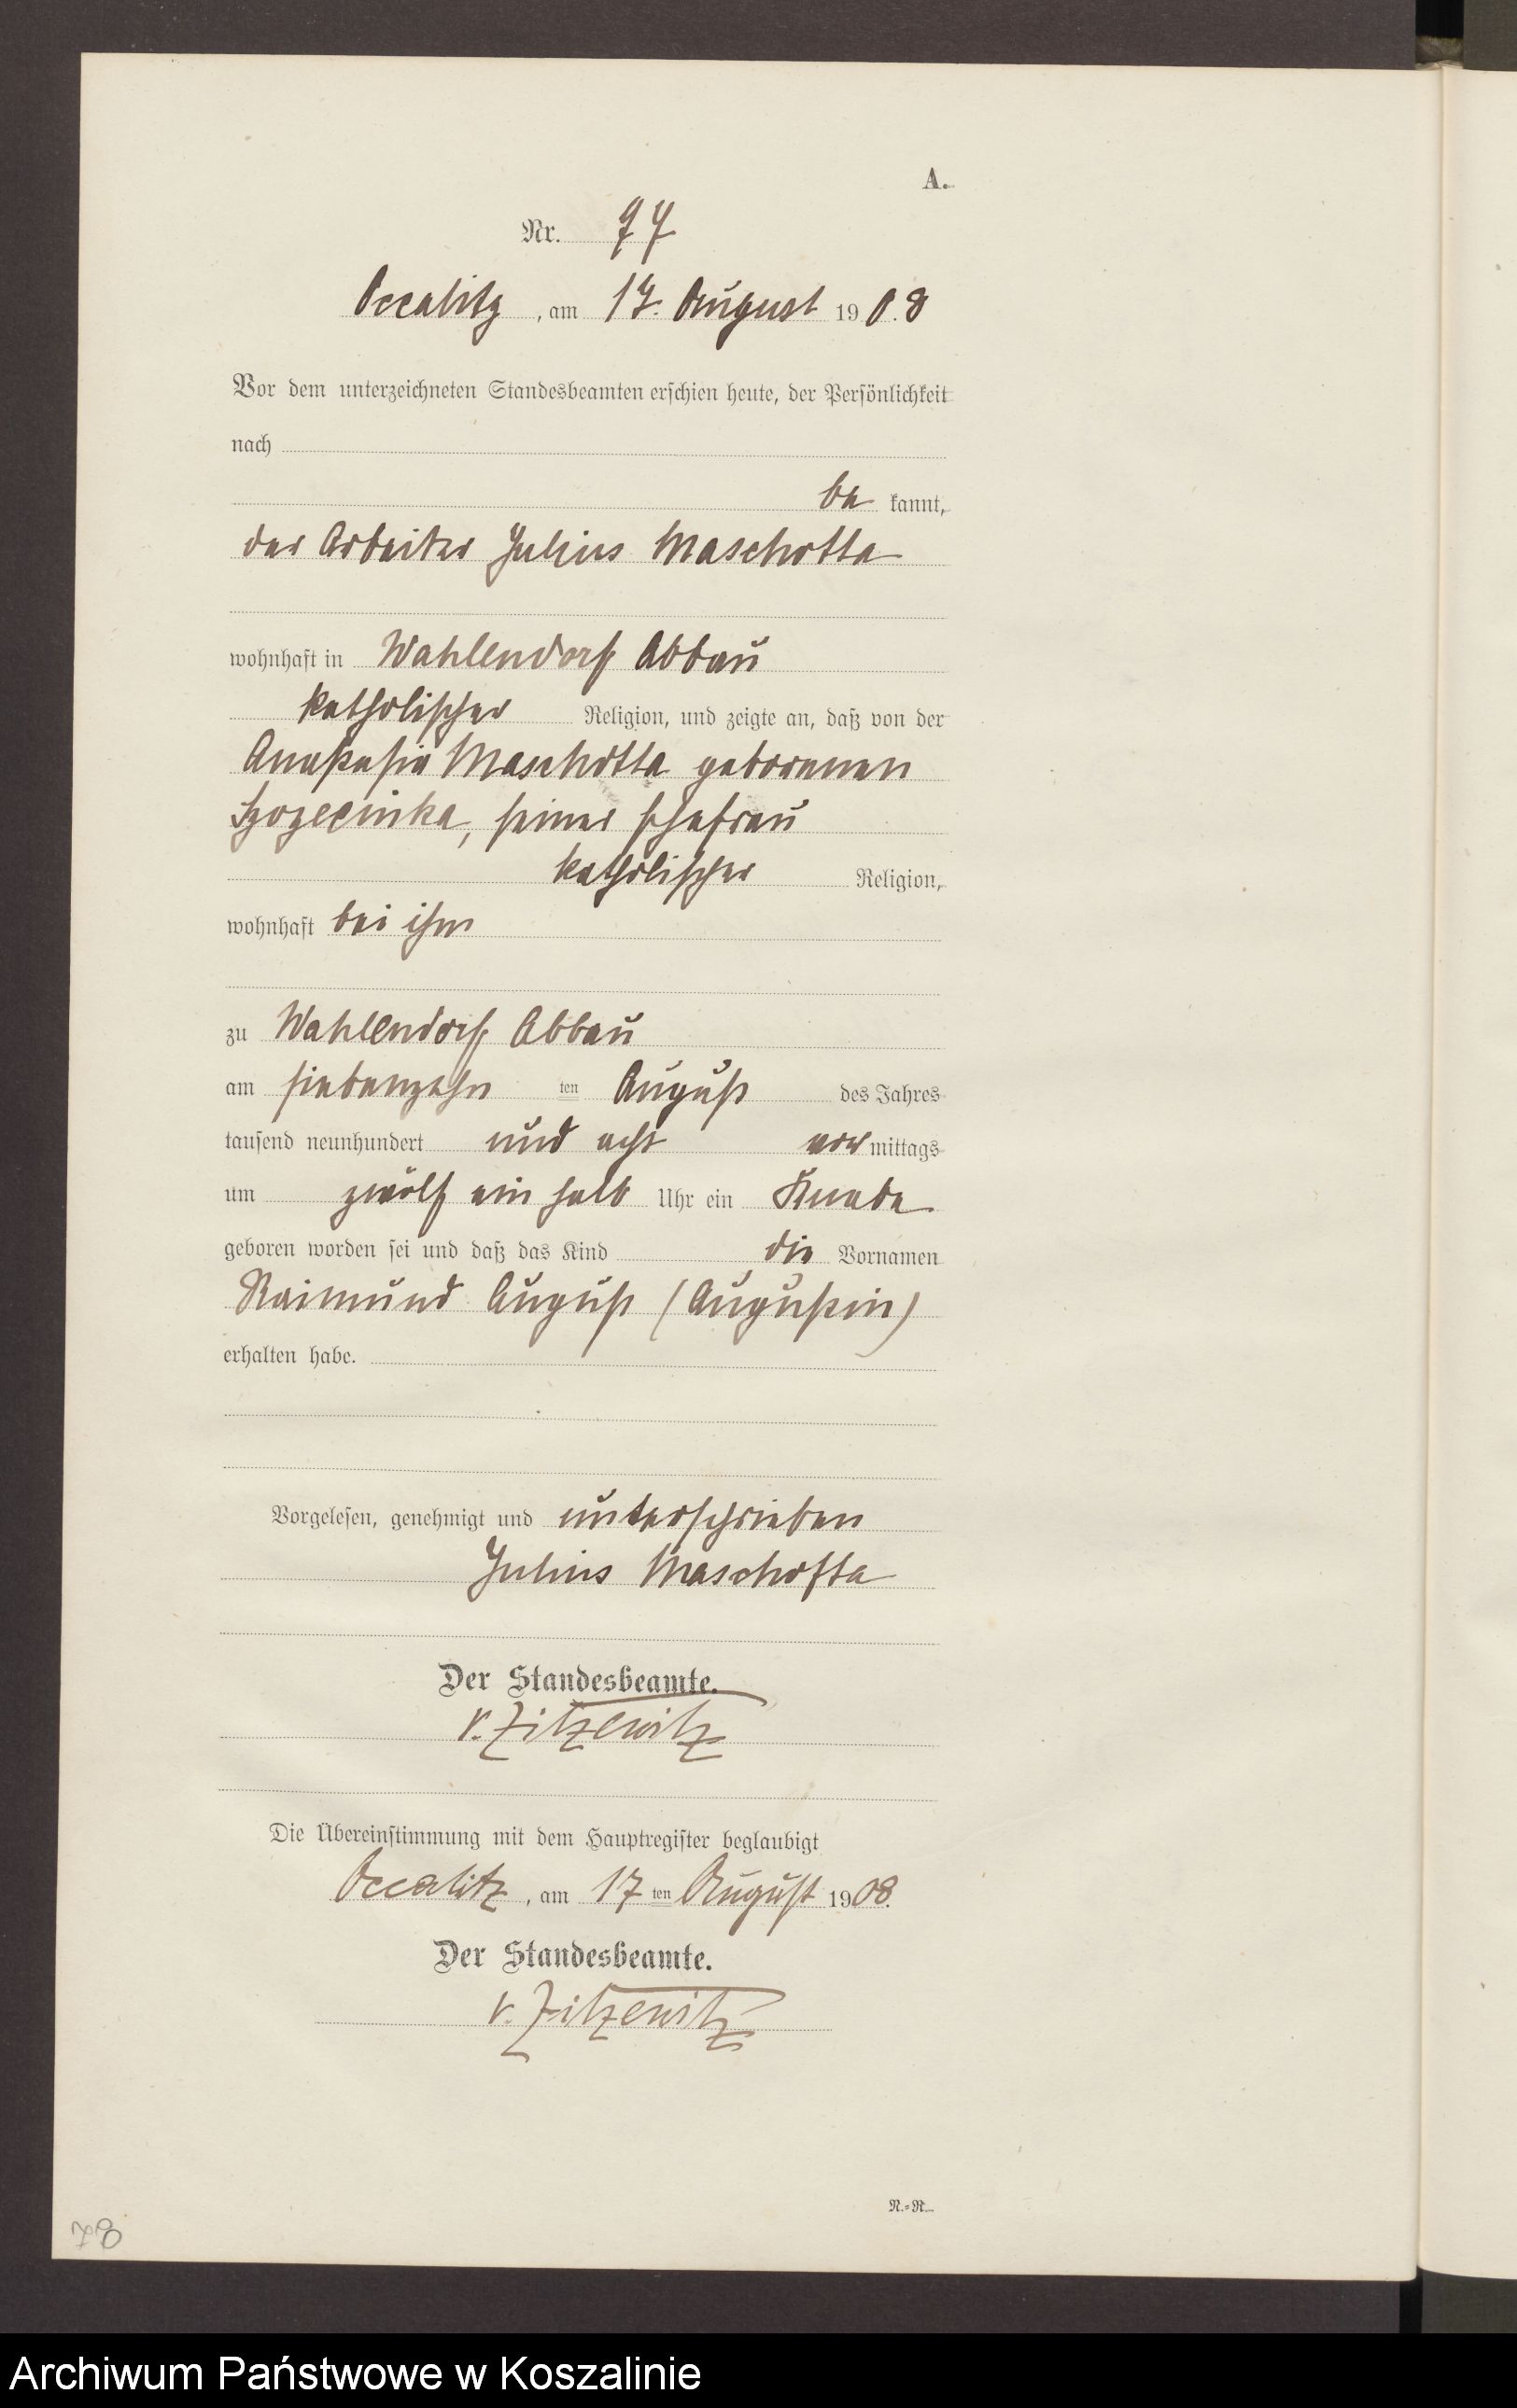 A.
Nr. 77
Occalitz, am 17. August 1908
Vor dem unterzeichneten Standesbeamten erschien heute, der Persönlichkeit
nach
be kannt,
der Arbeiter Julius Maschotta
wohnhaft in Wahlendorf Abbau
katholischer Religion, und zeigte an, daß von der
Anastasia Maschotta geborenen
seiner Ehefrau
katholischer Religion,
wohnhaft bei ihm
zu Wahlendorf Abbau
am siebenzehn ten August des Jahres
tausend neunhundert und acht vor mittags
um zwölf ein halb Uhr ein Knabe
geboren worden sei und daß das Kind die Vornamen
Raimund August (Augustin)
erhalten habe.
Vorgelesen, genehmigt und unterschrieben
Julius Maschotta
Der Standesbeamte.
v. Zitzewitz
Die Übereinstimmung mit dem Hauptregister beglaubigt
Occalitz, am 17 ten August 1908.
Der Standesbeamte.
v. Zitzewitz
N.=R.
78
Archiwum Państwowe w Koszalinie